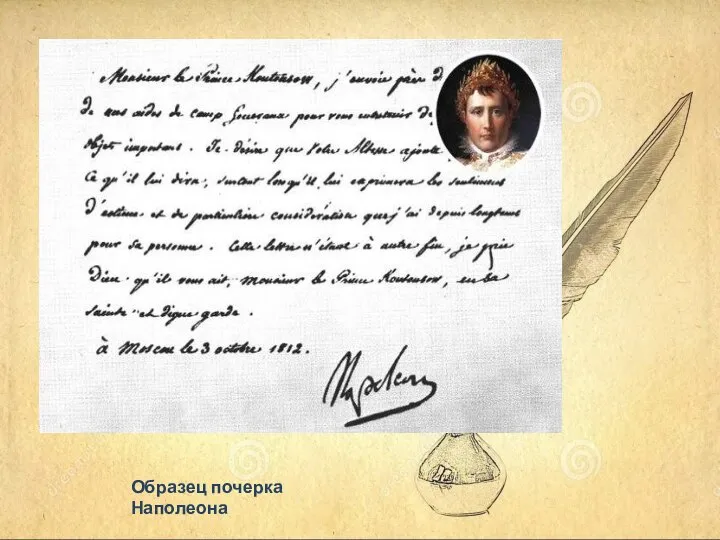 Monsieur le Prince Koutousow, j'envoie près d
de nos aides de camp Généraux pour vous entretenir de
objet important. Je désire que Votre Altesse ajoute
ce qu'il lui dira, surtout lorsqu'il lui exprimera les sentimens
d'estime et de particulière considération que j'ai depuis longtems
pour sa personne. Cette lettre n'étant à autre fin, je prie
Dieu qu'il vous ait, Monsieur le Prince Koutousow, en sa
sainte et digne garde.
à Moscou le 3 octobre 1812.
Napoleon
Образец почерка
Наполеона